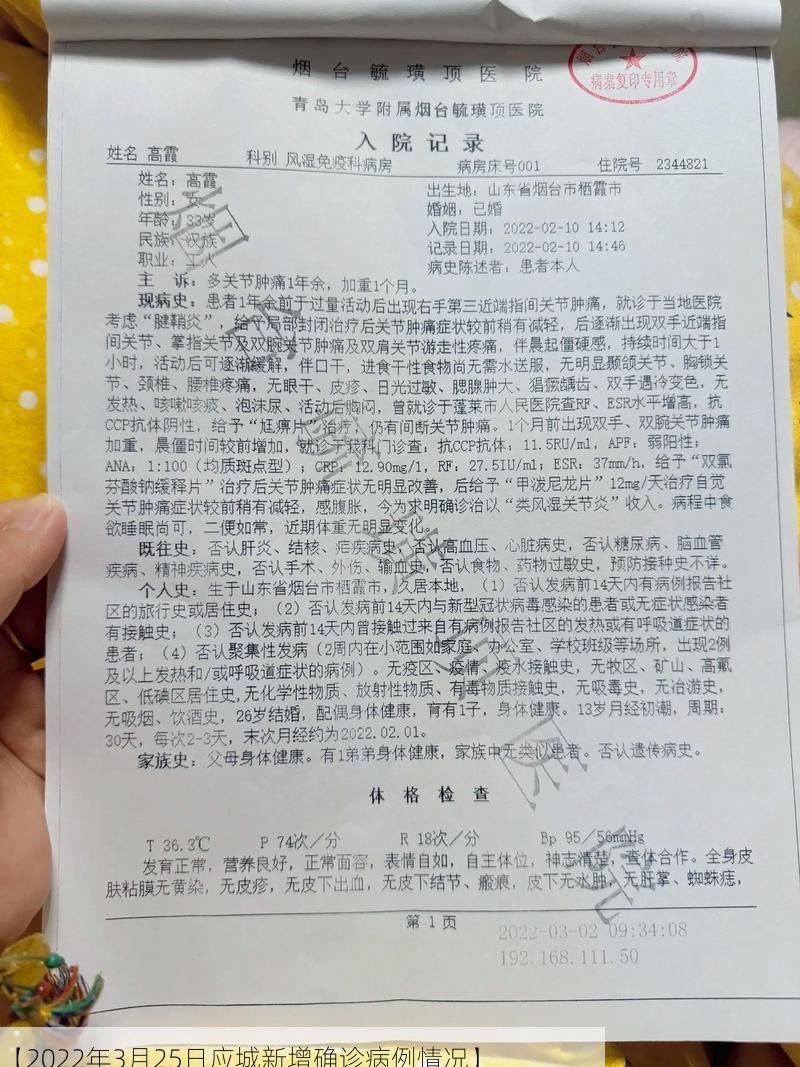 病案复印专用章
烟台毓璜顶医院
青岛大学附属烟台毓璜顶医院
入院记录
姓名 高霞 科别 风湿免疫科病房 病房床号001 住院号 2344821
姓名：高霞 出生地：山东省烟台市栖霞市
性别：女 婚姻：已婚
年龄：33岁 入院日期：2022-02-10 14:12
民族：汉族 记录日期：2022-02-10 14:46
职业：工人 病史陈述者：患者本人
主 诉：多关节肿痛1年余，加重1个月。
现病史：患者1年余前于过量活动后出现右手第三近端指间关节肿痛，就诊于当地医院
考虑“腱鞘炎”，给予局部封闭治疗后关节肿痛症状较前稍有减轻，后逐渐出现双手近端指
间关节、掌指关节及双腕关节肿痛及双肩关节游走性疼痛，伴晨起僵硬感，持续时间大于1
小时，活动后可逐渐缓解，伴口干，进食干性食物尚无需水送服，无明显颞颌关节、胸锁关
节、颈椎、腰椎疼痛，无眼干、皮疹、日光过敏、腮腺肿大、猖獗龋齿、双手遇冷变色，无
发热、咳嗽咳痰、泡沫尿、活动后胸闷，曾就诊于蓬莱市人民医院查RF、ESR水平增高，抗
CCP抗体阴性，给予“尪痹片”治疗，仍有间断关节肿痛。1个月前出现双手、双腕关节肿痛
加重，晨僵时间较前增加，就诊于我科门诊查：抗CCP抗体：11.5RU/ml，APF：弱阳性；
ANA：1:100（均质斑点型）；CRP：12.90mg/l，RF：27.5IU/ml；ESR：37mm/h，给予“双氯
芬酸钠缓释片”治疗后关节肿痛症状无明显改善，后给予“甲泼尼龙片”12mg/天治疗自觉
关节肿痛症状较前稍有减轻，感腹胀，今为求明确诊治以“类风湿关节炎”收入。病程中食
欲睡眠尚可，二便如常，近期体重无明显变化。
既往史：否认肝炎、结核、疟疾病史，否认高血压、心脏病史，否认糖尿病、脑血管
疾病、精神疾病史，否认手术、外伤、输血史，否认食物、药物过敏史，预防接种史不详。
个人史：生于山东省烟台市栖霞市，久居本地，（1）否认发病前14天内有病例报告社
区的旅行史或居住史；（2）否认发病前14天内与新型冠状病毒感染的患者或无症状感染者
有接触史；（3）否认发病前14天内曾接触过来自有病例报告社区的发热或有呼吸道症状的
患者；（4）否认聚集性发病（2周内在小范围如家庭、办公室、学校班级等场所，出现2例
及以上发热和/或呼吸道症状的病例）。无疫区、疫情、疫水接触史，无牧区、矿山、高氟
区、低碘区居住史，无化学性物质、放射性物质、有毒物质接触史，无吸毒史，无冶游史，
无吸烟、饮酒史，26岁结婚，配偶身体健康，育有1子，身体健康。13岁月经初潮，周期：
30天，每次2-3天，末次月经约为2022.02.01。
家族史：父母身体健康。有1弟弟身体健康，家族中无类似患者。否认遗传病史。
体格检查
T 36.3℃ P 74次/分 R 18次/分 Bp 95/56mmHg
发育正常，营养良好，正常面容，表情自如，自主体位，神志清楚，查体合作。全身皮
肤粘膜无黄染，无皮疹，无皮下出血，无皮下结节、瘢痕，皮下无水肿，无肝掌、蜘蛛痣，
第 1 页
2022-03-02 09:34:08
192.168.111.50
【2022年3月25日应城新增确诊病例情况】